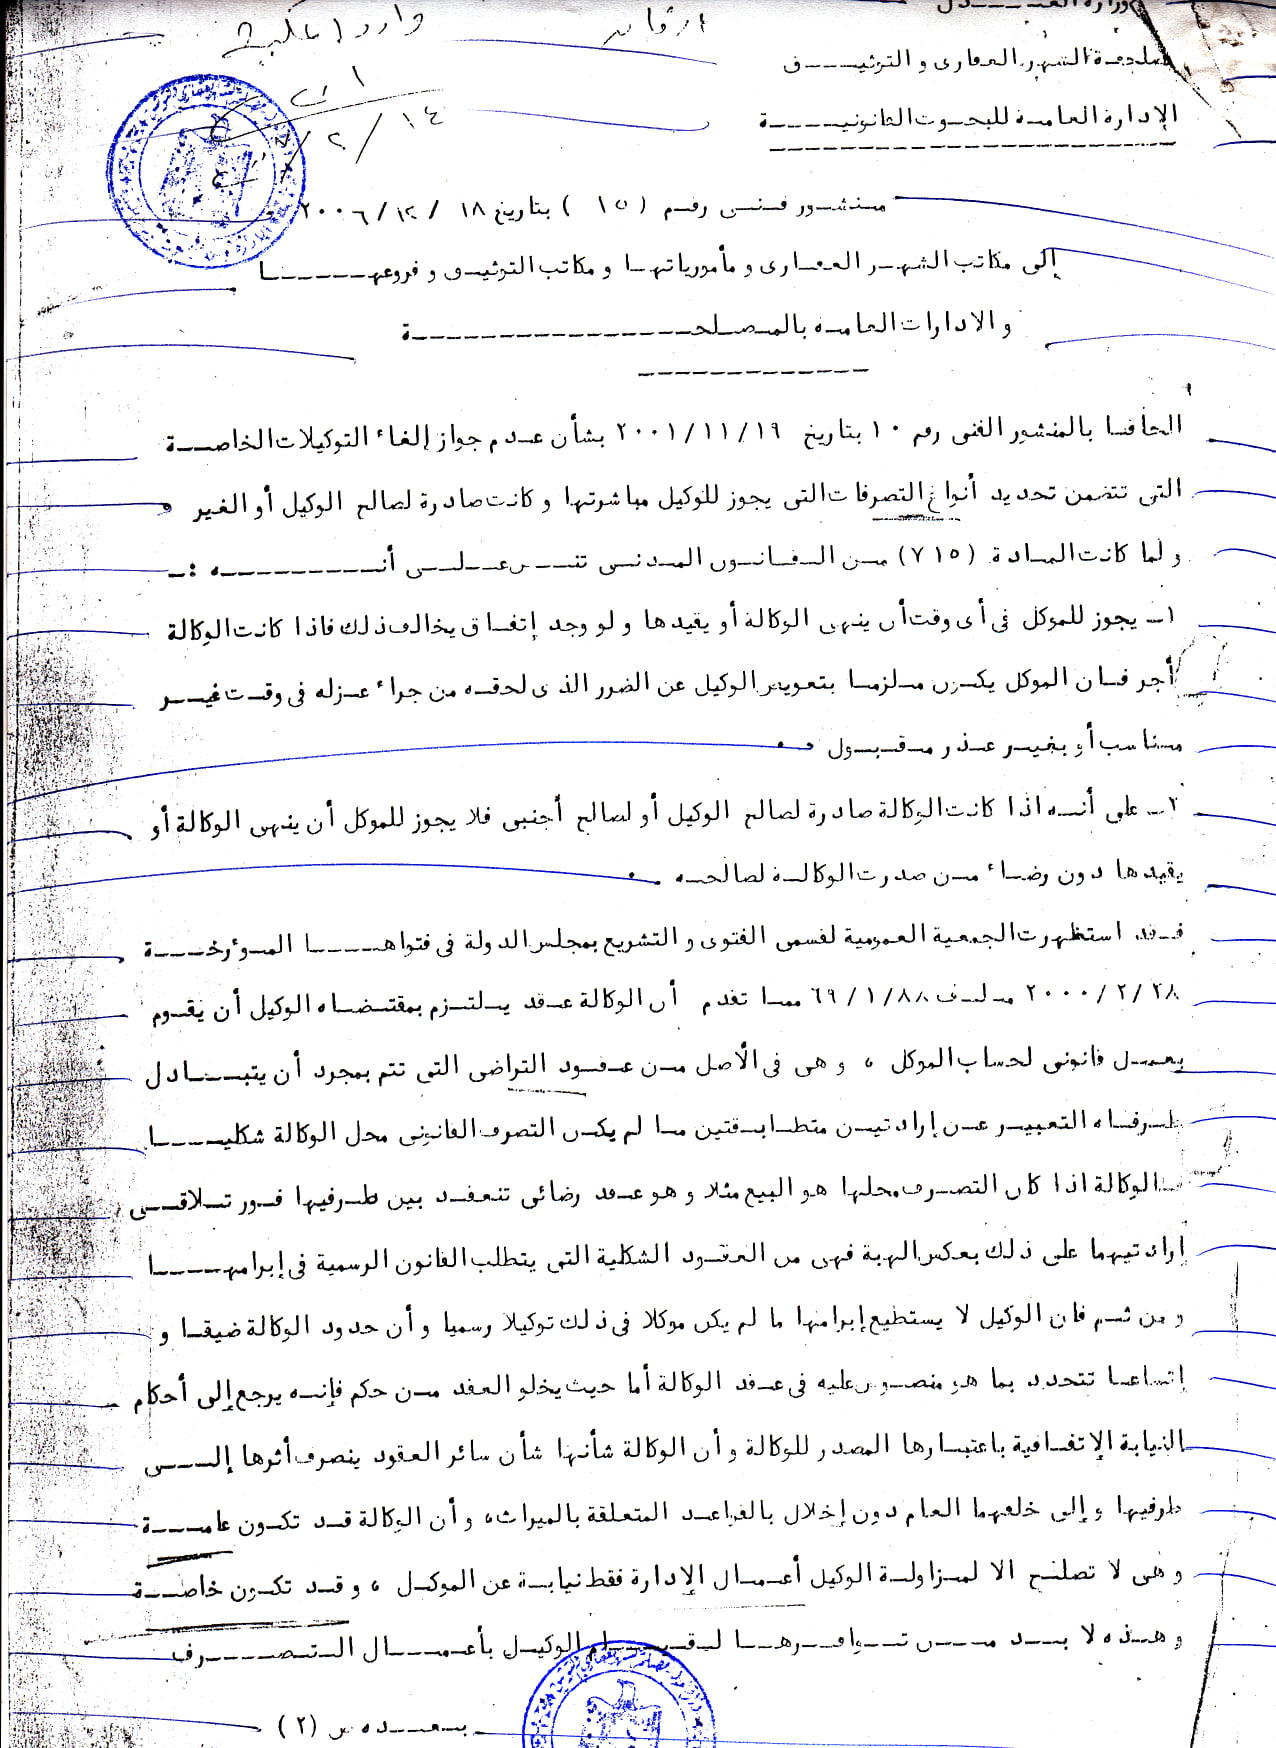 وزارة العدل
مصلحة الشهر العقارى و التوثيق
الإدارة العامة للبحوث القانونية
منشور فنى رقم ( ١٥ ) بتاريخ ١٨ / ١٢ / ٢٠٠٦
إلى مكاتب الشهر العقارى و مأمورياتها و مكاتب التوثيق و فروعها
و الادارات العامة بالمصلحة
الحاقا بالمنشور الفنى رقم ١٠ بتاريخ ١٩ / ١١ / ٢٠٠١ بشأن عدم جواز إلغاء التوكيلات الخاصة
التى تتضمن تحديد أنواع التصرفات التى يجوز للوكيل مباشرتها و كانت صادرة لصالح الوكيل أو الغير .
و لما كانت المادة (٧١٥) من القانون المدنى تنص على أنه :ـ
١ـ يجوز للموكل فى أى وقت أن ينهى الوكالة أو يقيدها و لو وجد إتفاق يخالف ذلك فاذا كانت الوكالة
أجر فان الموكل يكون ملزما بتعويض الوكيل عن الضرر الذى لحقه من جراء عزله فى وقت غير
مناسب أو بغير عذر مقبول .
٢ـ على أنه اذا كانت الوكالة صادرة لصالح الوكيل أو لصالح أجنبى فلا يجوز للموكل أن ينهى الوكالة أو
يقيدها دون رضاء من صدرت الوكالة لصالحه .
فقد استظهرت الجمعية العمومية لقسمى الفتوى و التشريع بمجلس الدولة فى فتواها المؤرخة
٢٨ / ٢ / ٢٠٠٠ ملف ٨٨ / ١ / ٦٩ مما تقدم أن الوكالة عقد يلتزم بمقتضاه الوكيل أن يقوم
بعمل قانونى لحساب الموكل ، و هى فى الأصل من عقود التراضى التى تتم بمجرد أن يتبادل
طرفاه التعبير عن إرادتين متطابقتين ما لم يكن التصرف القانونى محل الوكالة شكليا
فالوكالة اذا كان التصرف محلها هو البيع مثلا و هو عقد رضائى تنعقد بين طرفيها فور تلاقى
إرادتيهما على ذلك بعكس الهبة فهى من العقود الشكلية التى يتطلب القانون الرسمية فى إبرامها
و من ثم فان الوكيل لا يستطيع إبرامها ما لم يكن موكلا فى ذلك توكيلا رسميا و أن حدود الوكالة ضيقا و
إتساعا تتحدد بما هو منصوص عليه فى عقد الوكالة أما حيث يخلو العقد من حكم فإنه يرجع إلى أحكام
النيابة الإتفاقية باعتبارها المصدر للوكالة و أن الوكالة شأنها شأن سائر العقود ينصرف أثرها إلى
طرفيها و إلى خلفهما العام دون إخلال بالقواعد المتعلقة بالميراث ، و أن الوكالة قد تكون عامة
و هى لا تصلح الا لمزاولة الوكيل أعمال الإدارة فقط نيابة عن الموكل ، و قد تكون خاصة
و هذه لا بد من توافرها لقيام الوكيل بأعمال التصرف
بعده ص (٢)